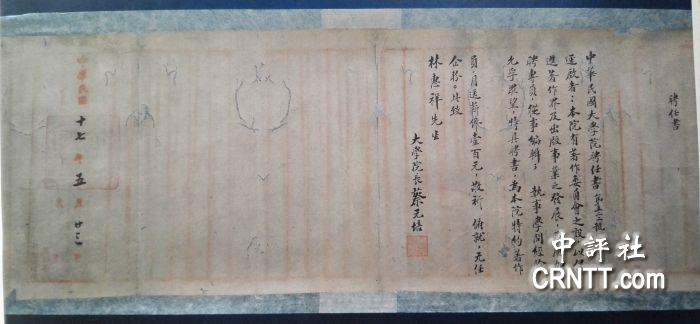 聘任书
中華民國大學院聘任書 第五三號
逕啟者：本院有著作委員會之設，以
進著作界及出版事業之發展，
聘專員，從事編輯； 執事學問經
允孚眾望特具聘書，為本院特約著作
員，月送薪俸壹百元，敬祈 俯就，无任
企盼。此致
林惠祥先生
大學院長蔡元培
中華民國十七年五月廿三
中評社
CRNTT.com